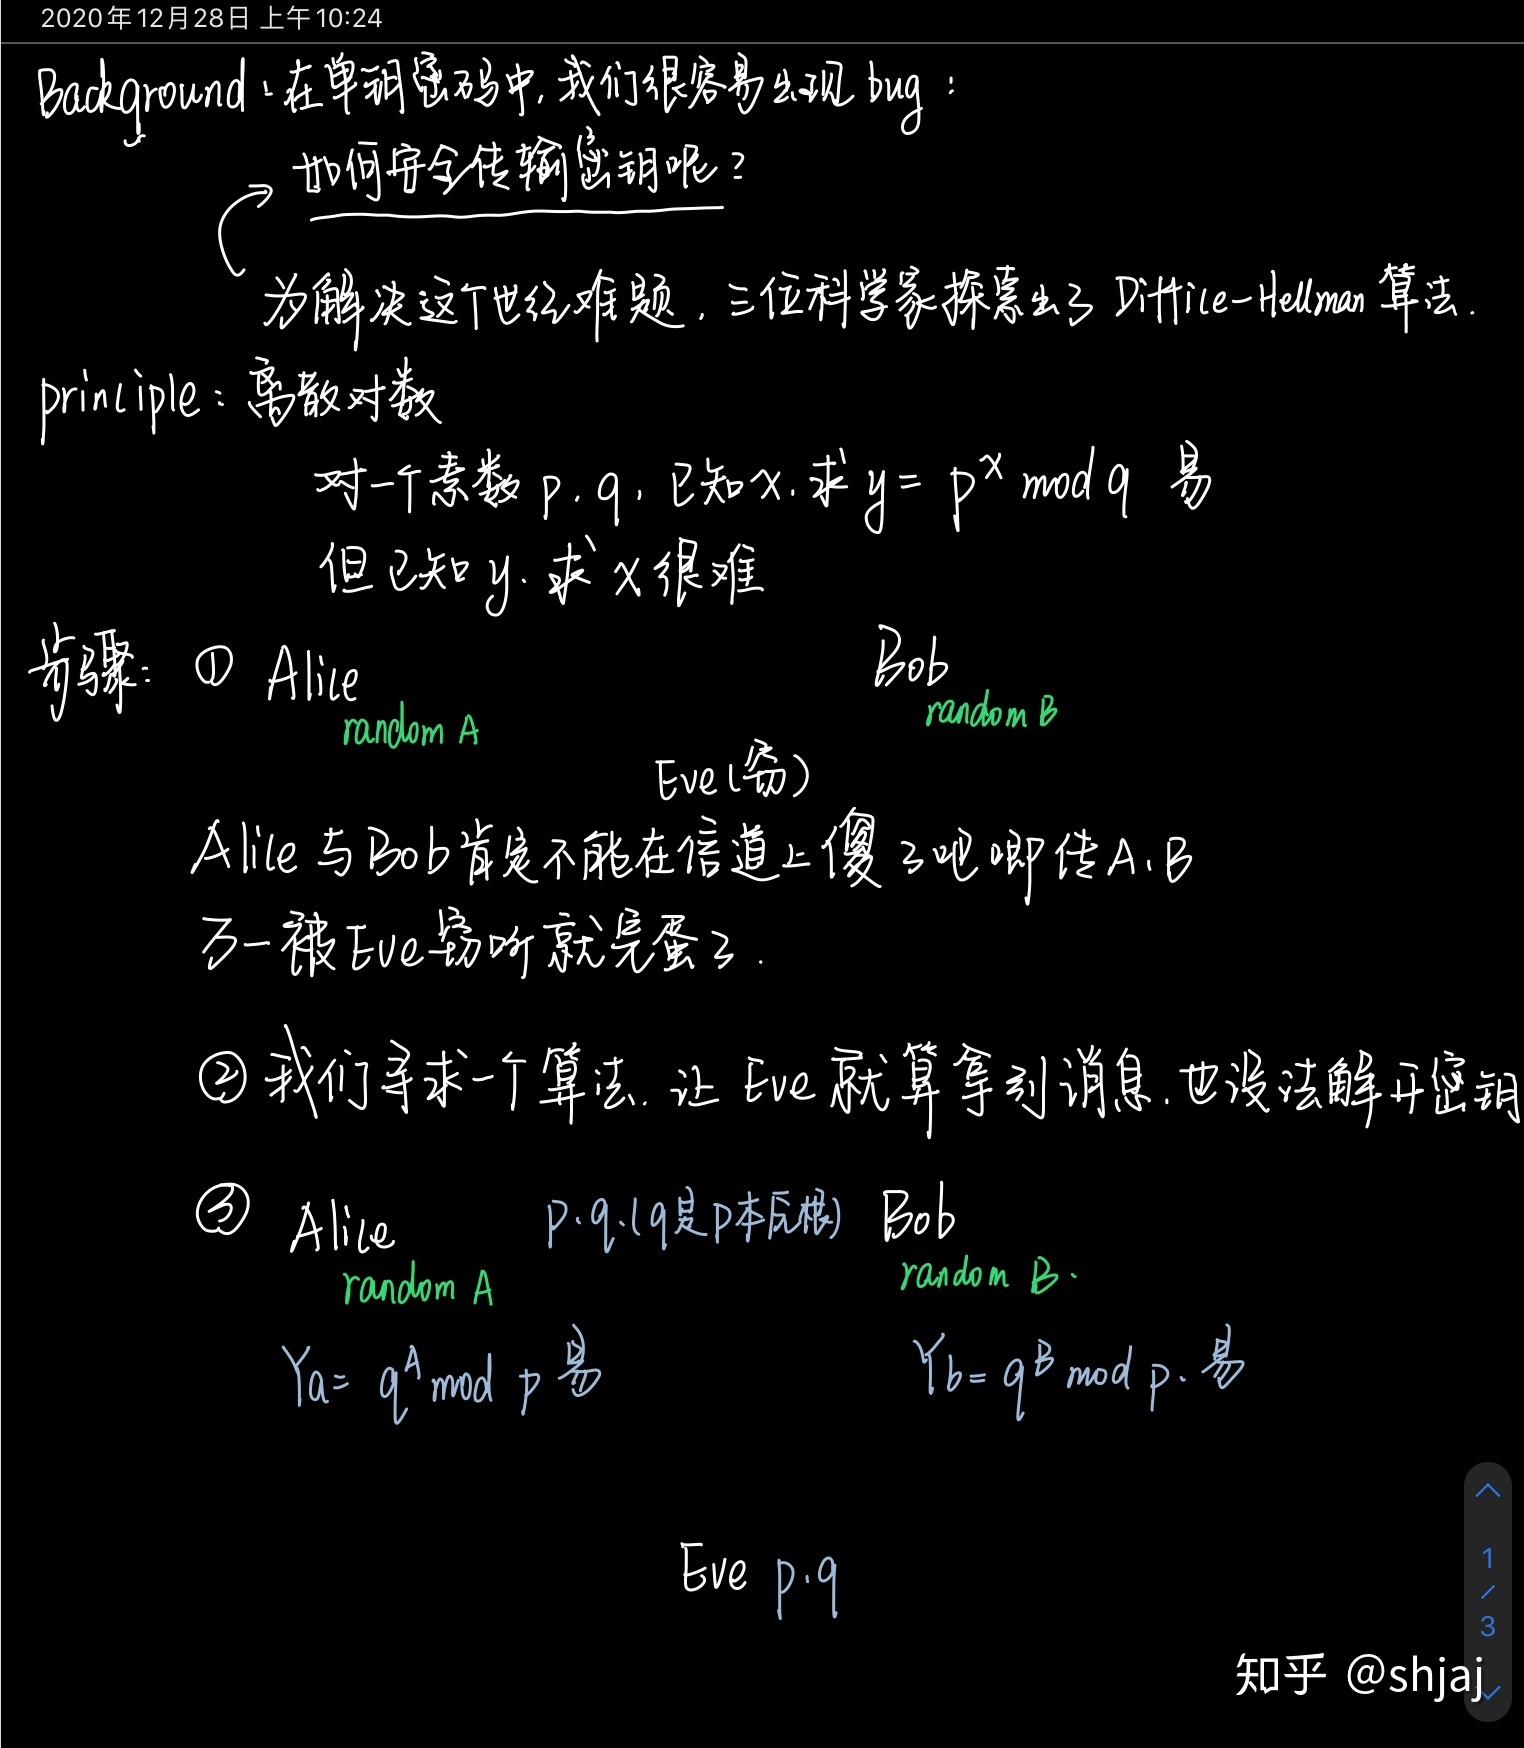 2020年12月28日 上午10:24
Background：在单钥密码中，我们很容易出现bug：
如何安全传输密钥呢？
为解决这个世纪难题，三位科学家探索出了Diffice-Hellman算法.
principle：离散对数
对一个素数p.q，已知x，求y= p^x mod q 易
但已知y.求x很难
步骤：① Alice Bob
random A random B
Eve(窃)
Alice与Bob肯定不能在信道上傻了吧唧传A、B
万一被Eve窃听就完蛋了.
②我们寻求一个算法.让Eve就算拿到消息.也没法解开密钥
③ Alice p.q.(q是p本原根) Bob
random A random B.
Ya= q^A mod p 易 Yb= q^B mod p. 易
Eve p.q
1
/
3
知乎 @shjaj